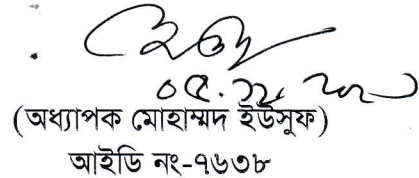 ০৫.১২.২০২
(অধ্যাপক মোহাম্মদ ইউসুফ)
আইডি নং-৭৬৩৮